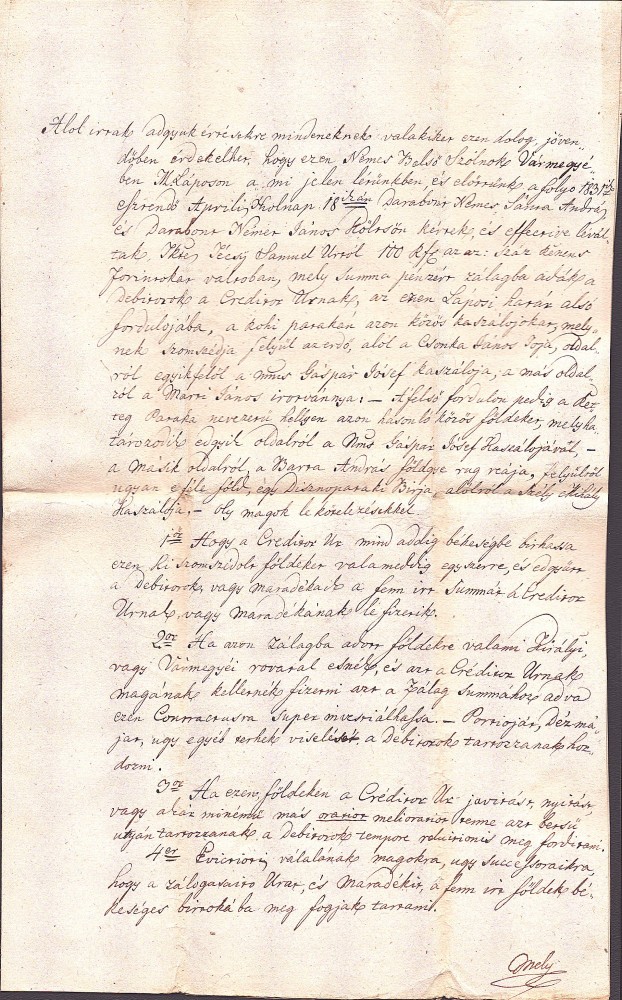 Alol irrak adgyuk érrésekre mindeneknek valakiket ezen dolog jöven-
dőben érdekelhet, hogy ezen Nemes Belső Szólnok Vármegyé-
ben M Láposon a mi jelen létünkben és előttünk a folyo 1831ik
esztendő Aprilis Holnap 18ikán Darabont Nemes Sántra András
és Darabont Német János Költsön kértek, és effective lévál-
tak Tkts Técsy Samuel Urtól 100 Rfr az az: Száz kénens
forintokat váltoban, mely Summa pénzért zálagba adák a
Debitorok a Creditor Urnak, az ezen Láposi határ alsó
fordulojába, a kohi patakán azon közös kaszálojokat, mely-
nek szomszédja felyül az erdő, alól a Csonka János Joja, oldal-
ról egyikfelől a nms Gáspár Josef kaszáloja, a más oldal-
ról a Marti János irotványa: – A felső fordulon pedig a Ret-
teg Pataka nevezetű hellyen azon hasonló közös földeket, mely ha-
tározodik edgyik oldalról a Nms Gáspár Josef Kaszálojával, –
a másik oldalról, a Barra András földgye rug reája, felyülről
ugyan efféle föld, égy Disznopataki Birja, alolról a Székj Mihály
Kaszáloja. – oly magok le kötelezésekkel
1ör Hogy a Creditor Ur mind addig békeségbe birhassa
ezen ki szomszédolt földeket valameddig egyszerre, és edgyütt
a Debitorok, vagy maradékaik a fenn irt Summát a Creditor
Urnak, vagy maradékának le fizetik.
2or Ha azon zálagba adott földekre valami Királyi,
vagy Vármegyéi rovatal esnék, és azt a Créditor Urnak
magának kelletnék fizetni azt a Zálag Summahoz adva
ezen Contractusra Superinvestiálhassa. – Portioját, Dézmá-
ját, ugy egyéb terhek viselését a Debitorok tartozzanak hor-
dozni.
3or Ha ezen földeken a Créditor Ur javitást, nyitást,
vagy akár minémű más orator melioratiot tenne azt betsü
utján tartozzanak a Debitorok tempore reluitionis meg forditani.
4er Evictiorj válalának magokra, ugy successoraikra,
hogy a zálogasaito Urat, és Maradékit, a fenn irt földek bé-
keséges birtokába meg fogják tartani.
mely